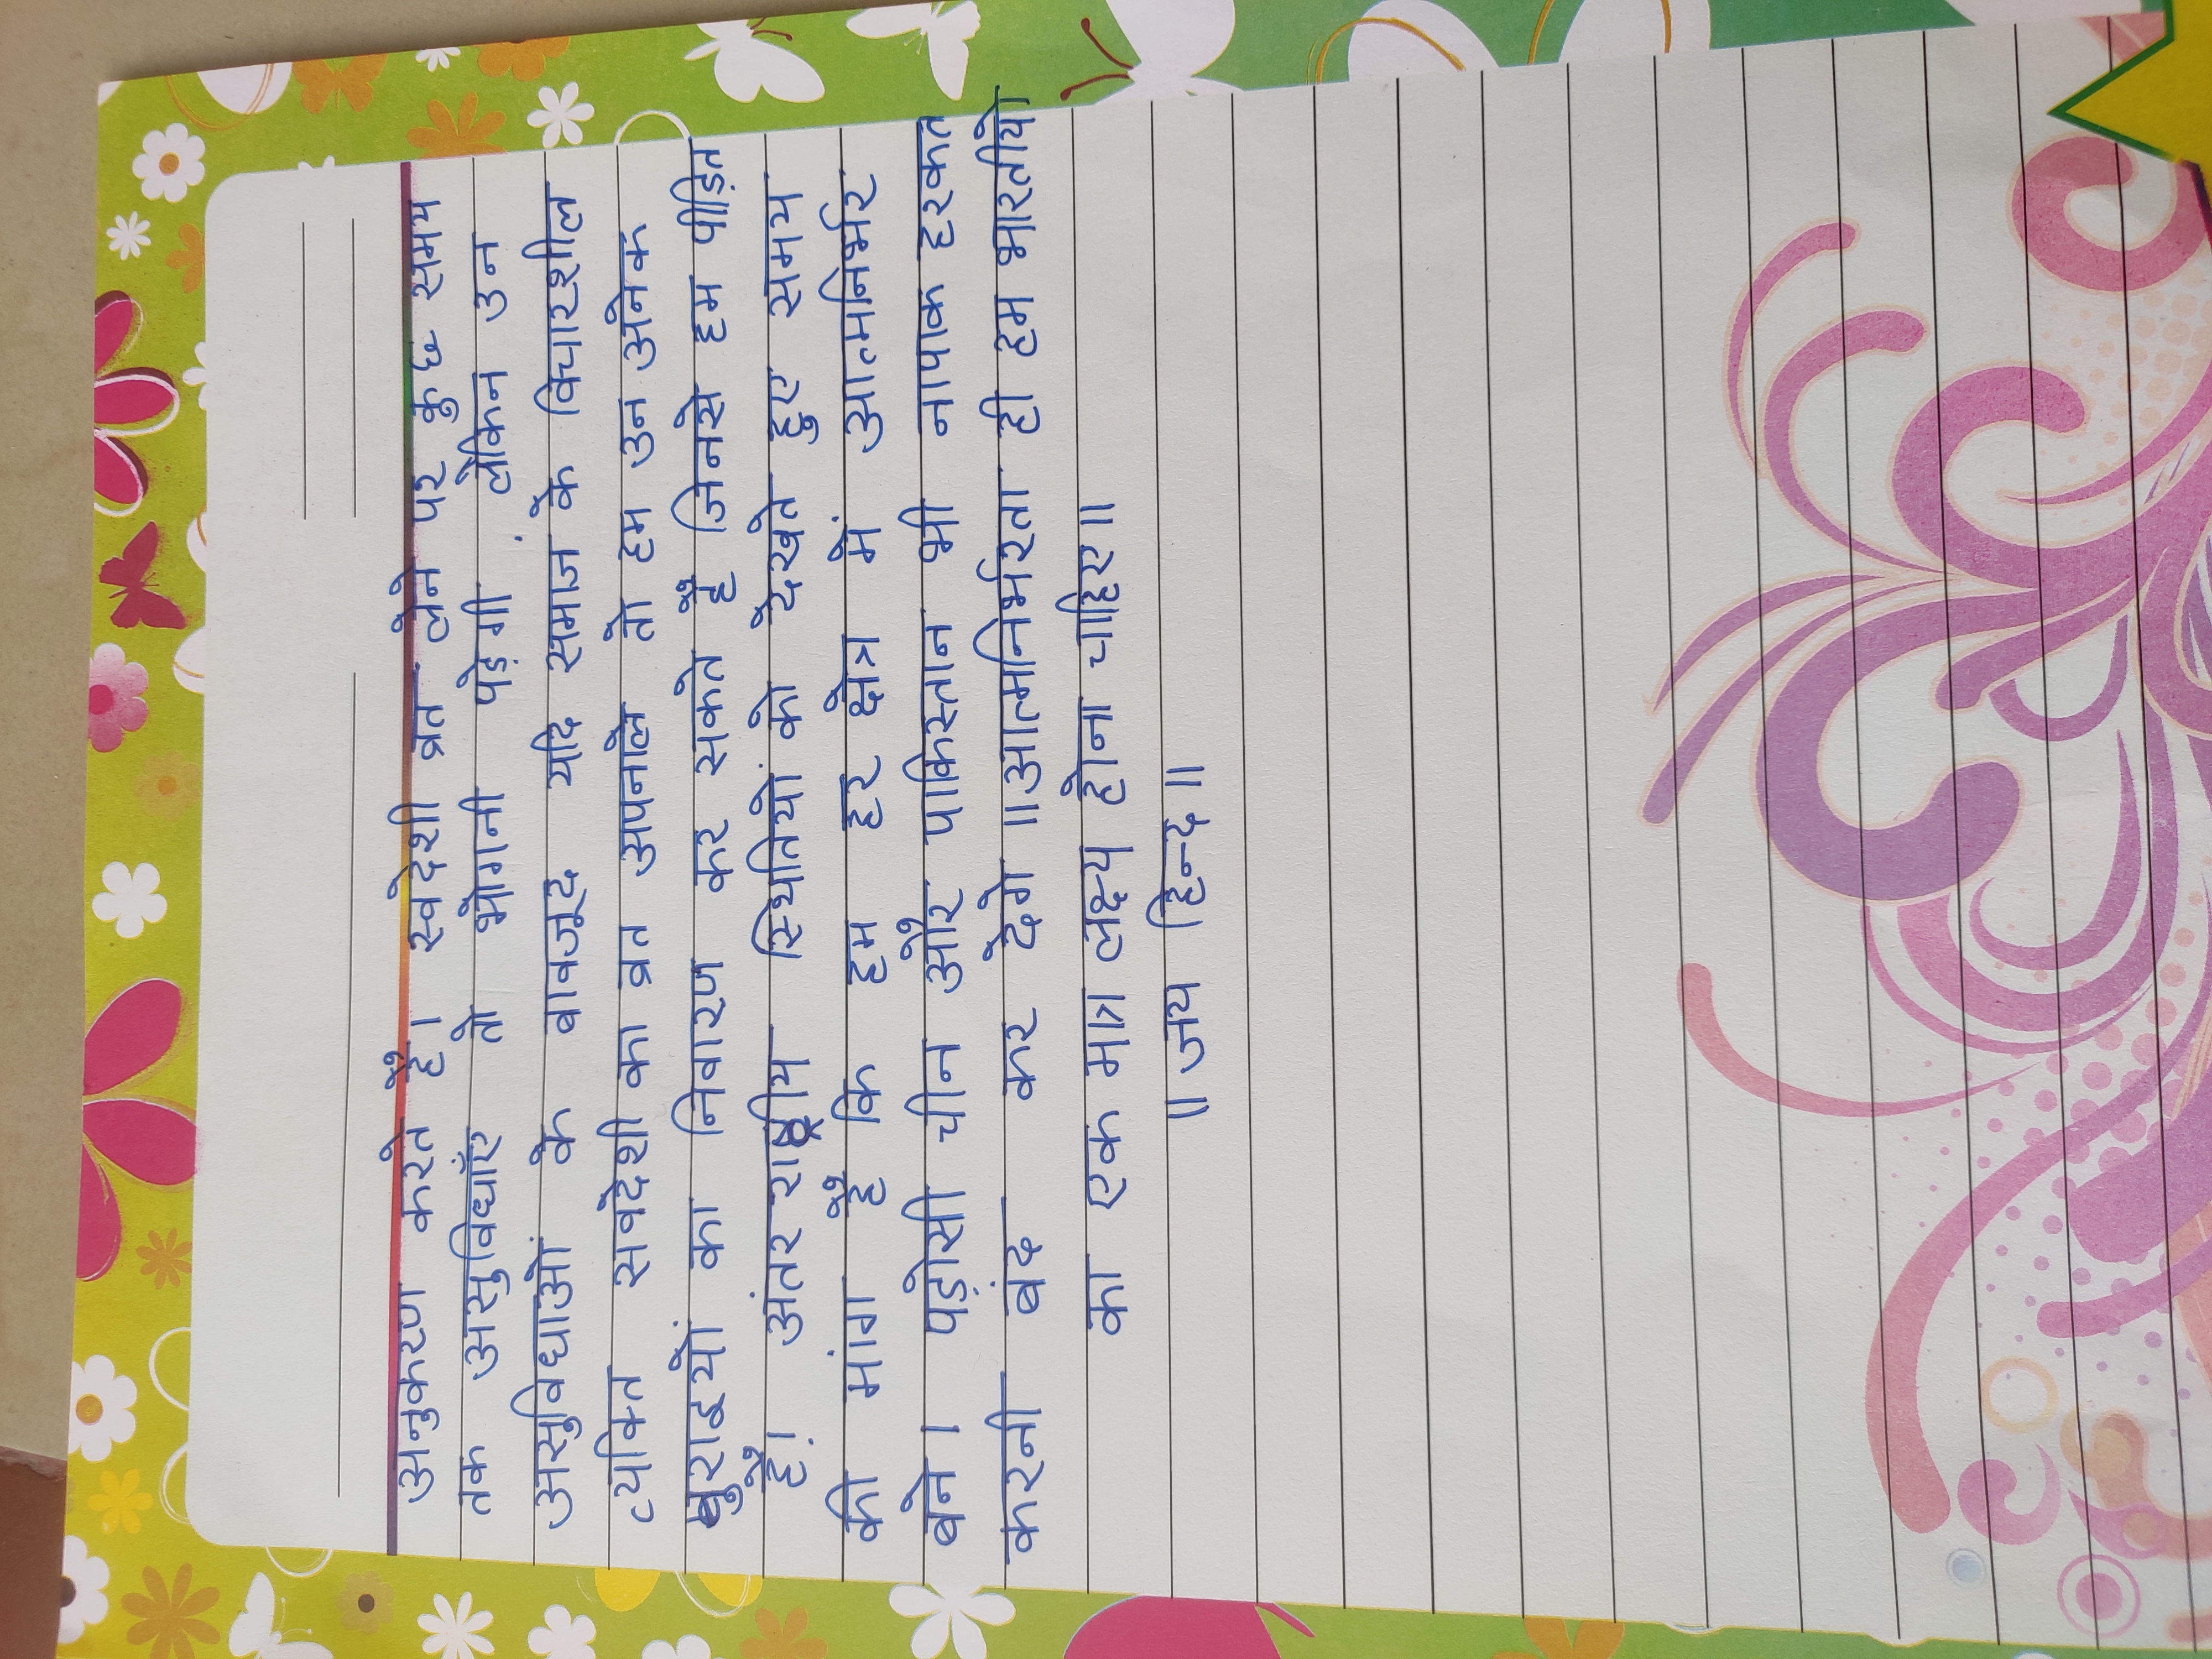 अनुकरण करते हैं। स्वदेशी व्रत लेने पर कुछ समय
तक असुविधाएँ तो भोगनी पेड़गी लेकिन उन
असुविधाओं के बावजूद यदि समाज के विचारशील
व्यक्ति सवदेशी का व्रत अपनाले तो हम उन अनेक
बुराइयों का निवारण कर सकते हैं जिनसे हम पीड़ित
हैं। अंतर राष्ट्रीय स्थितियों को देखते हुए समय
की मांग है कि हम हर क्षेत्र में आत्मनिर्भर
बने। पड़ोसी चीन और पाकिस्तान भी नापाक हरकत
करनी बंद कर देगे ॥आत्मनिर्भरता ही हम भारतीयो
का एक मात्र लक्ष्य होना चाहिए॥
॥ जय हिन्द ॥